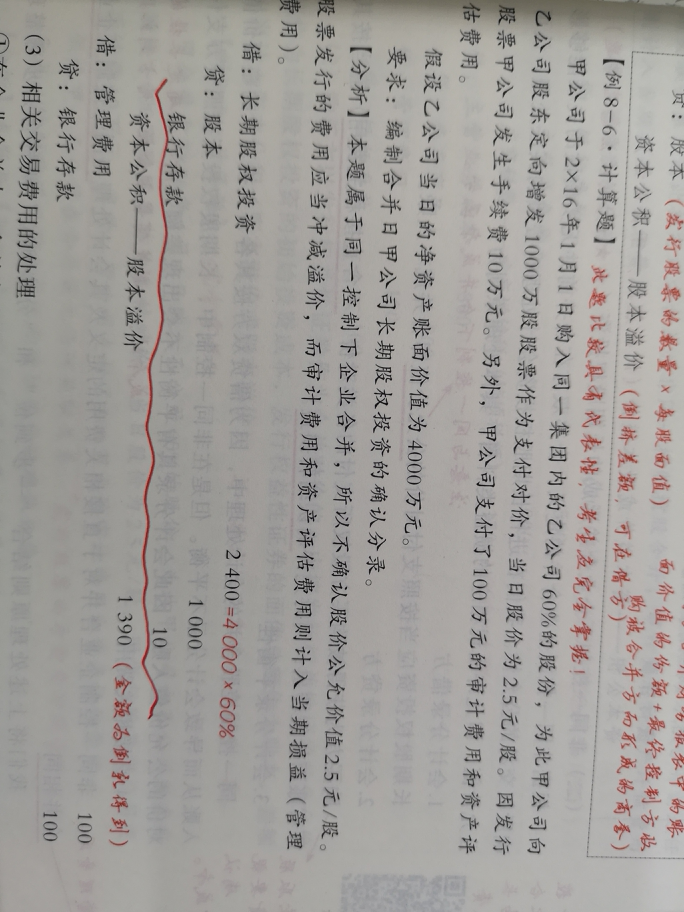 贷：股本（发行股票的数量×每股面值）
资本公积——股本溢价（倒挤差额，可在借方）
面价值的份额+最终控制方收
购被合并方而形成的商誉）
【例8-6·计算题】此题比较具有代表性，考生应完全掌握！
甲公司于2×16年1月1日购入同一集团内的乙公司60%的股份，为此甲公司向
乙公司股东定向增发1000万股股票作为支付对价，当日股价为2.5元/股。因发行
股票甲公司发生手续费10万元。另外，甲公司支付了100万元的审计费用和资产评
估费用。
假设乙公司当日的净资产账面价值为4000万元。
要求：编制合并日甲公司长期股权投资的确认分录。
【分析】本题属于同一控制下企业合并，所以不确认股价公允价值2.5元/股。
股票发行的费用应当冲减溢价，而审计费用和资产评估费用则计入当期损益（管理
费用）。
借：长期股权投资 2 400=4 000×60%
贷：股本 1 000
银行存款 10
资本公积——股本溢价 1 390（金额为倒轧得到）
借：管理费用 100
贷：银行存款 100
（3）相关交易费用的处理